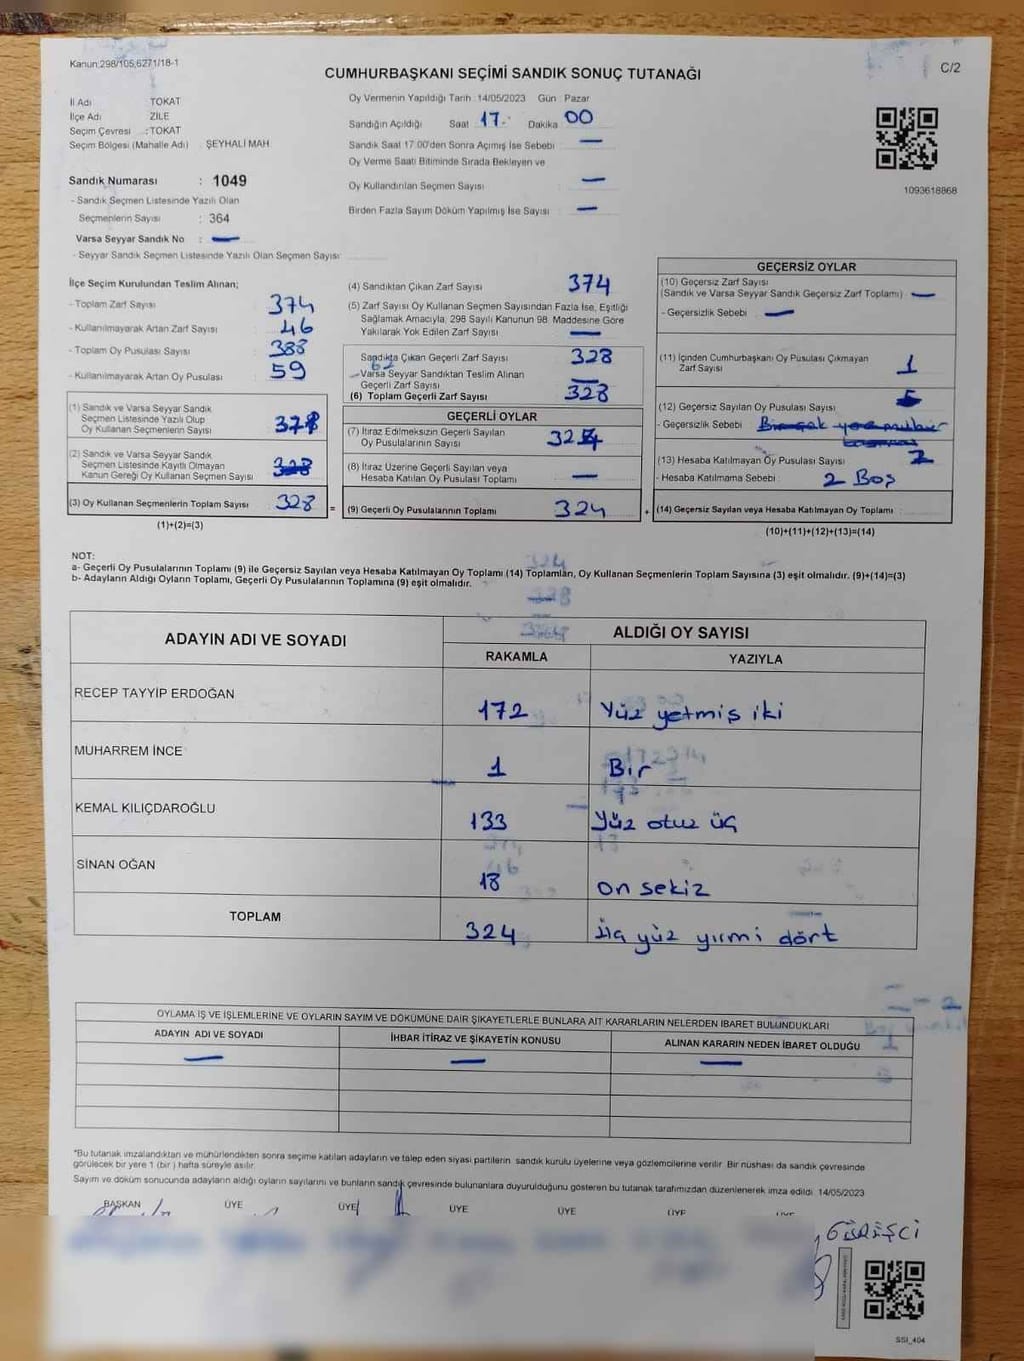 Kanun:298/105,6271/18-1
C/2
CUMHURBAŞKANI SEÇİMİ SANDIK SONUÇ TUTANAĞI
İl Adı TOKAT
İlçe Adı ZİLE
Seçim Çevresi : TOKAT
Seçim Bölgesi (Mahalle Adı) : ŞEYHALİ MAH
Sandık Numarası : 1049
- Sandık Seçmen Listesinde Yazılı Olan
Seçmenlerin Sayısı : 364
Varsa Seyyar Sandık No : —
- Seyyar Sandık Seçmen Listesinde Yazılı Olan Seçmen Sayısı
Oy Vermenin Yapıldığı Tarih : 14/05/2023 Gün Pazar
Sandığın Açıldığı Saat 17. Dakika 00
Sandık Saat 17.00'den Sonra Açımış İse Sebebi —
Oy Verme Saati Bitiminde Sırada Bekleyen ve
Oy Kullandırılan Seçmen Sayısı —
Birden Fazla Sayım Döküm Yapılmış İse Sayısı —
1093618868
İlçe Seçim Kurulundan Teslim Alınan;
- Toplam Zarf Sayısı 374
- Kullanılmayarak Artan Zarf Sayısı 46
- Toplam Oy Pusulası Sayısı 388
- Kullanılmayarak Artan Oy Pusulası 59
(1) Sandık ve Varsa Seyyar Sandık
Seçmen Listesinde Yazılı Olup
Oy Kullanan Seçmenlerin Sayısı
(2) Sandık ve Varsa Seyyar Sandık
Seçmen Listesinde Kayıtlı Olmayan
Kanun Gereği Oy Kullanan Seçmen Sayısı
(3) Oy Kullanan Seçmenlerin Toplam Sayısı 328 =
(1)+(2)=(3)
(4) Sandıktan Çıkan Zarf Sayısı 374
(5) Zarf Sayısı Oy Kullanan Seçmen Sayısından Fazla İse, Eşitliği
Sağlamak Amacıyla, 298 Sayılı Kanunun 98. Maddesine Göre
Yakılarak Yok Edilen Zarf Sayısı —
Sandıkta Çıkan Geçerli Zarf Sayısı 328
Varsa Seyyar Sandıktan Teslim Alınan
Geçerli Zarf Sayısı —
(6) Toplam Geçerli Zarf Sayısı 328
GEÇERLİ OYLAR
(7) İtiraz Edilmeksizin Geçerli Sayılan
Oy Pusulalarının Sayısı 324
(8) İtiraz Üzerine Geçerli Sayılan veya
Hesaba Katılan Oy Pusulası Toplamı —
(9) Geçerli Oy Pusulalarının Toplamı 324 +
GEÇERSİZ OYLAR
(10) Geçersiz Zarf Sayısı
(Sandık ve Varsa Seyyar Sandık Geçersiz Zarf Toplamı) —
- Geçersizlik Sebebi : —
(11) İçinden Cumhurbaşkanı Oy Pusulası Çıkmayan
Zarf Sayısı 1
(12) Geçersiz Sayılan Oy Pusulası Sayısı
- Geçersizlik Sebebi
(13) Hesaba Katılmayan Oy Pusulası Sayısı 2
- Hesaba Katılmama Sebebi : 2 Boş
(14) Geçersiz Sayılan veya Hesaba Katılmayan Oy Toplamı
(10)+(11)+(12)+(13)=(14)
NOT:
a- Geçerli Oy Pusulalarının Toplamı (9) ile Geçersiz Sayılan veya Hesaba Katılmayan Oy Toplamı (14) Toplamları, Oy Kullanan Seçmenlerin Toplam Sayısına (3) eşit olmalıdır. (9)+(14)=(3)
b- Adayların Aldığı Oyların Toplamı, Geçerli Oy Pusulalarının Toplamına (9) eşit olmalıdır.
ADAYIN ADI VE SOYADI ALDIĞI OY SAYISI
RAKAMLA YAZIYLA
RECEP TAYYİP ERDOĞAN 172 Yüz yetmiş iki
MUHARREM İNCE 1 Bir
KEMAL KILIÇDAROĞLU 133 Yüz otuz üç
SİNAN OĞAN 18 on sekiz
TOPLAM 324 üç yüz yirmi dört
OYLAMA İŞ VE İŞLEMLERİNE VE OYLARIN SAYIM VE DÖKÜMÜNE DAİR ŞİKAYETLERLE BUNLARA AİT KARARLARIN NELERDEN İBARET BULUNDUKLARI
ADAYIN ADI VE SOYADI İHBAR İTİRAZ VE ŞİKAYETİN KONUSU ALINAN KARARIN NEDEN İBARET OLDUĞU
— — —
*Bu tutanak imzalandıktan ve mühürlendikten sonra seçime katılan adayların ve talep eden siyasi partilerin sandık kurulu üyelerine veya gözlemcilerine verilir. Bir nüshası da sandık çevresinde
görülecek bir yere 1 (bir) hafta süreyle asılır.
Sayım ve döküm sonucunda adayların aldığı oyların sayılarını ve bunların sandık çevresinde bulunanlara duyurulduğunu gösteren bu tutanak tarafımızdan düzenlenerek imza edildi. 14/05/2023
BAŞKAN ÜYE ÜYE ÜYE ÜYE ÜYE ÜYE
SSI_404